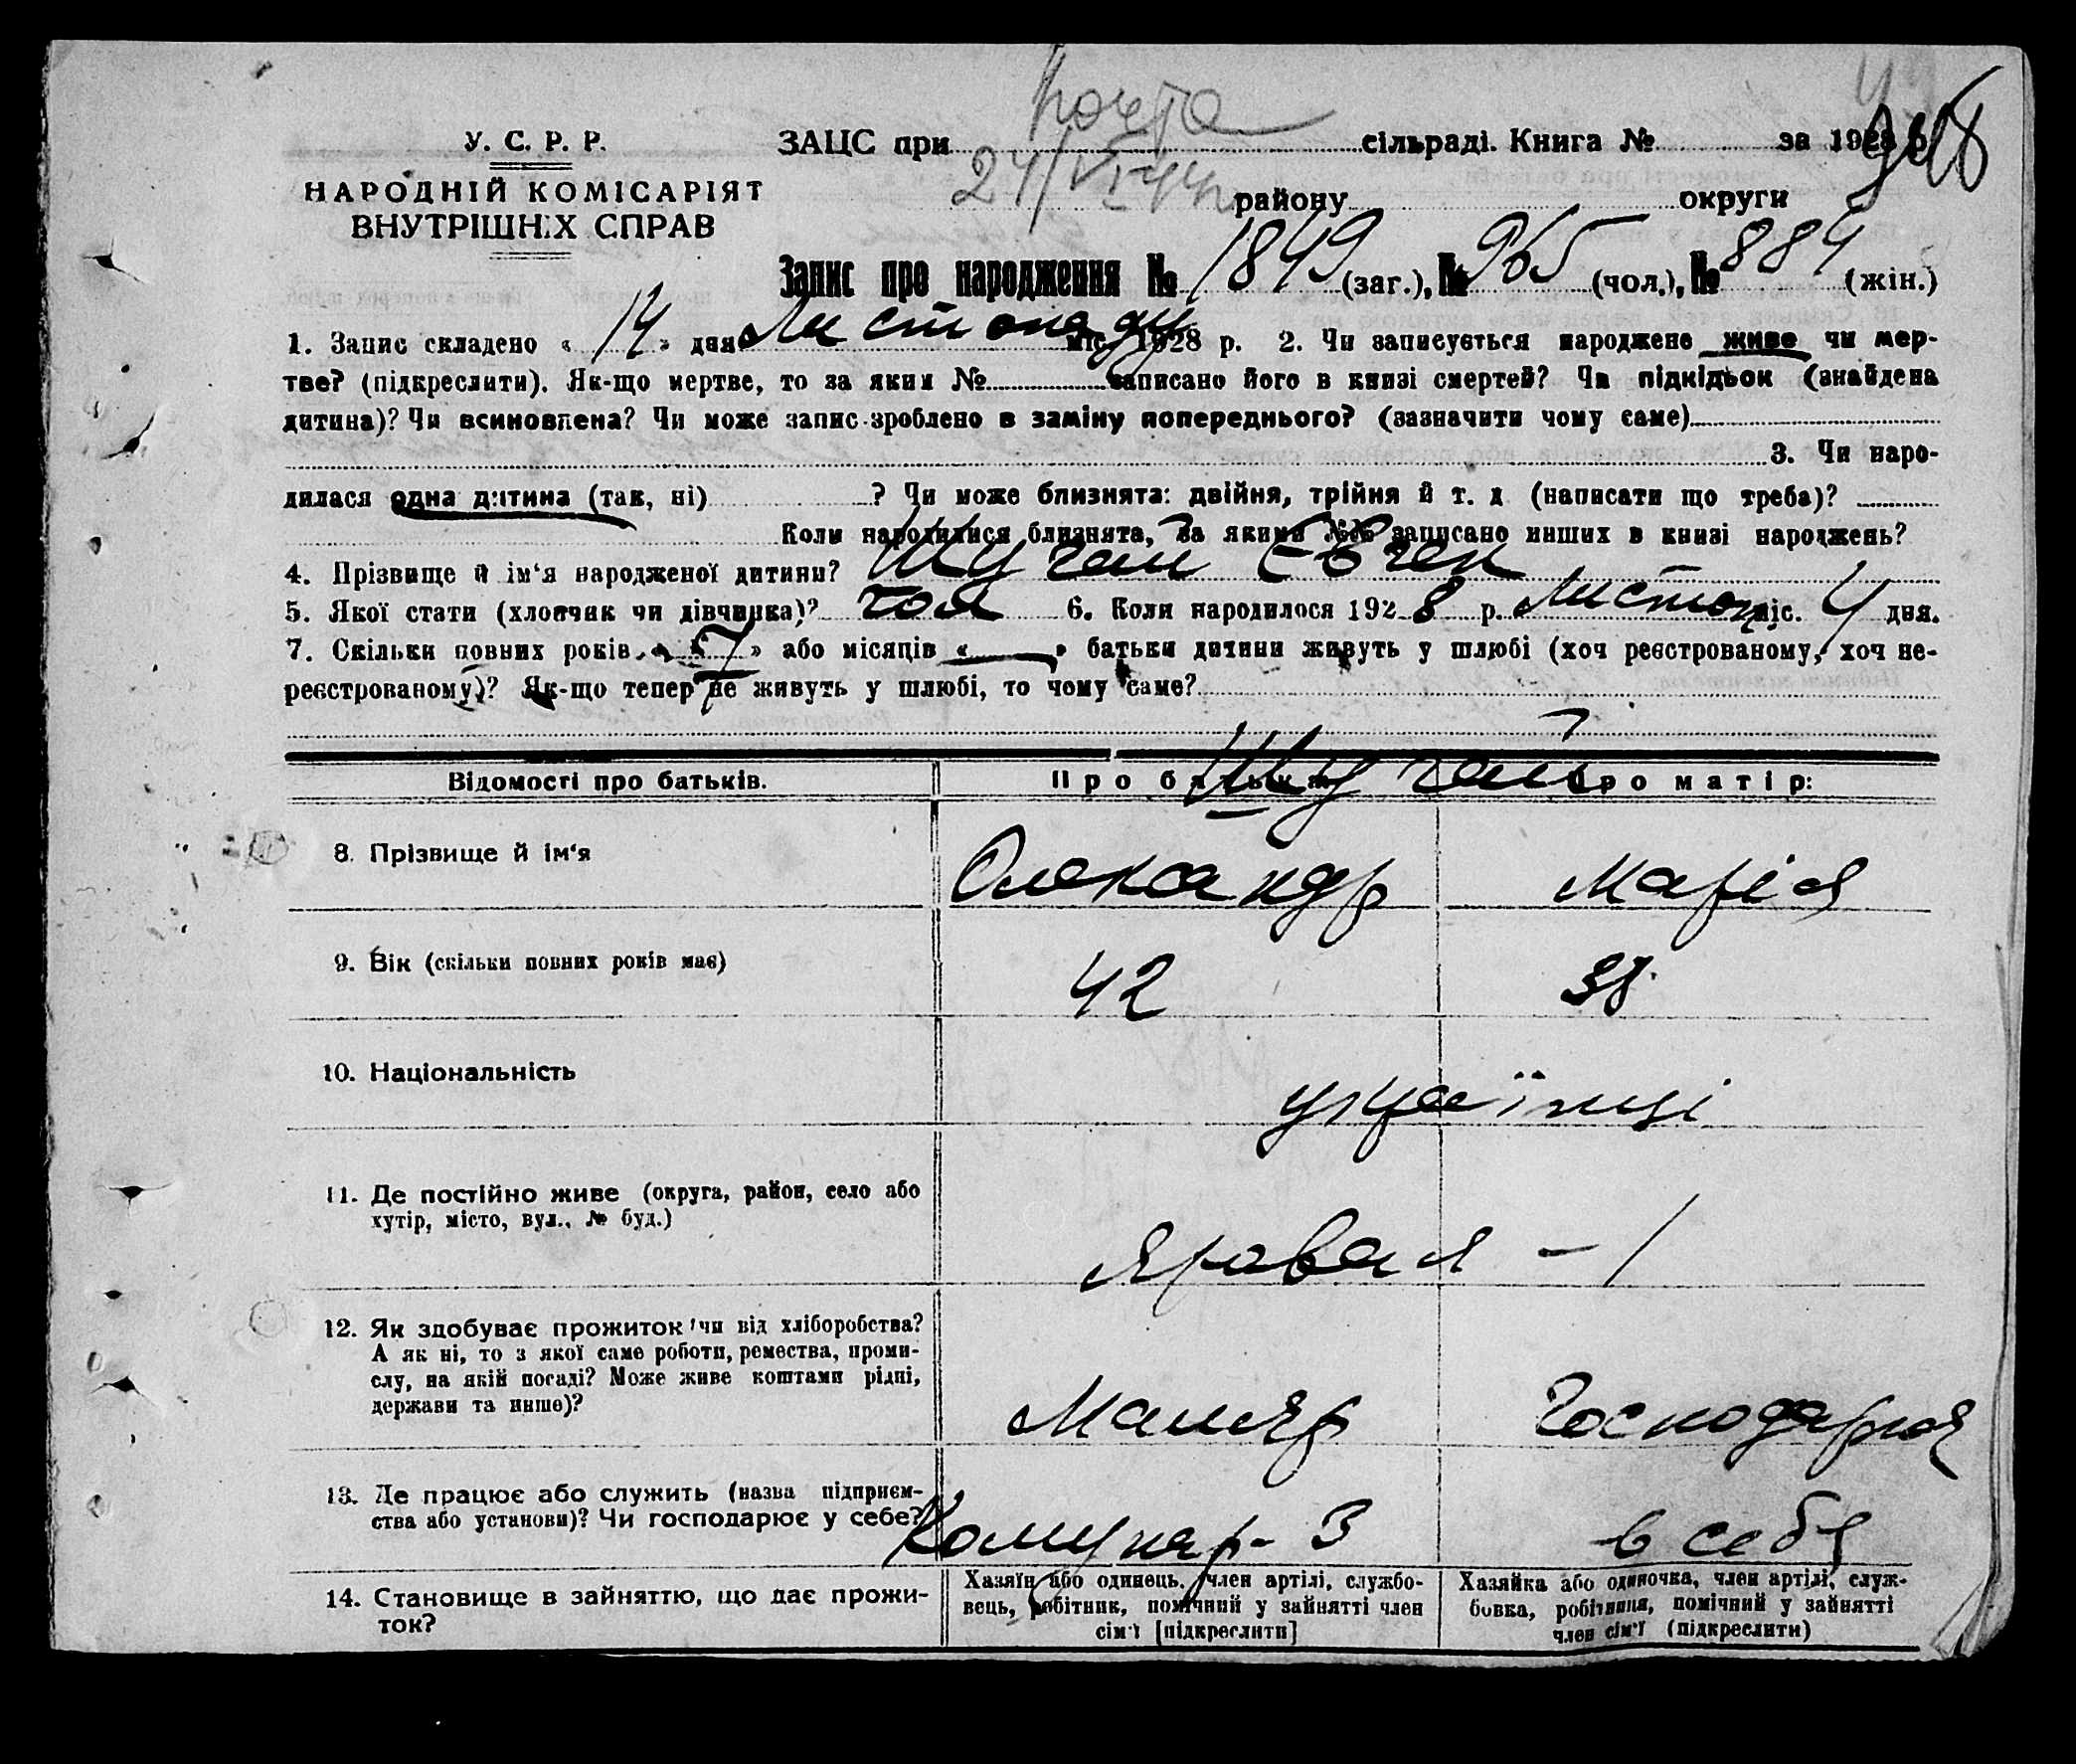 Почта
948
У. С. Р. Р.
ЗАЦС при сільраді. Книга № за 1928 р.
24/VI-44 р
НАРОДНІЙ КОМІСАРІЯТ
ВНУТРІШНІХ СПРАВ
району округи
Запис про народження № 1849 (заг.), № 965 (чол.), № 884 (жін.)
1. Запис складено « 14 » дня Листопаду міс. 1928 р. 2. Чи записується народжене живе чи мер-
тве? (підкреслити). Як-що мертве, то за яким № записано його в книзі смертей? Чи підкідьок (знайдена
дитина)? Чи всиновлена? Чи може запис зроблено в заміну попереднього? (зазначити чому саме)
3. Чи наро-
дилася одна дитина (так, ні) ? Чи може близнята: двійня, трійня й т. д (написати що треба)?
Коли народилися близнята, за якими №№ записано инших в книзі народжень?
4. Прізвище й ім‘я народженої дитини? Шугай Евген
5. Якої стати (хлопчик чи дівчинка)? чол 6. Коли народилося 1928 р. Листоп міс. 4 дня.
7. Скільки повних років « 7 » або місяців « — » батьки дитини живуть у шлюбі (хоч реєстрованому, хоч не-
реєстрованому)? Як-що тепер не живуть у шлюбі, то чому саме?
Відомості про батьків. Про батька: Про матір:
Шугай
8. Прізвище й ім‘я Олександр Марія
9. Вік (скільки повних років має) 42 38
10. Національність українці
11. Де постійно живе (округа, район, село або
хутір, місто, вул., № буд.)
Яровая – 1
12. Як здобуває прожиток чи від хліборобства?
А як ні, то з якої саме роботи, ремества, проми-
слу, на якій посаді? Може живе коштами рідні,
держави та инше)?
Маляр Господарюя
13. Де працює або служить (назва підприєм-
ства або установи)? Чи господарює у себе?
Комунар- 3 в себя
14. Становище в зайняттю, що дає прожи-
ток?
Хазяїн або одинець, член артілі, службо-
вець, робітник, помічний у зайнятті член
сім‘ї [підкреслити]
Хазяйка або одиночка, член артілі, служ-
бовка, робітниця, помічний у зайнятті
член сім‘ї (підкреслити)